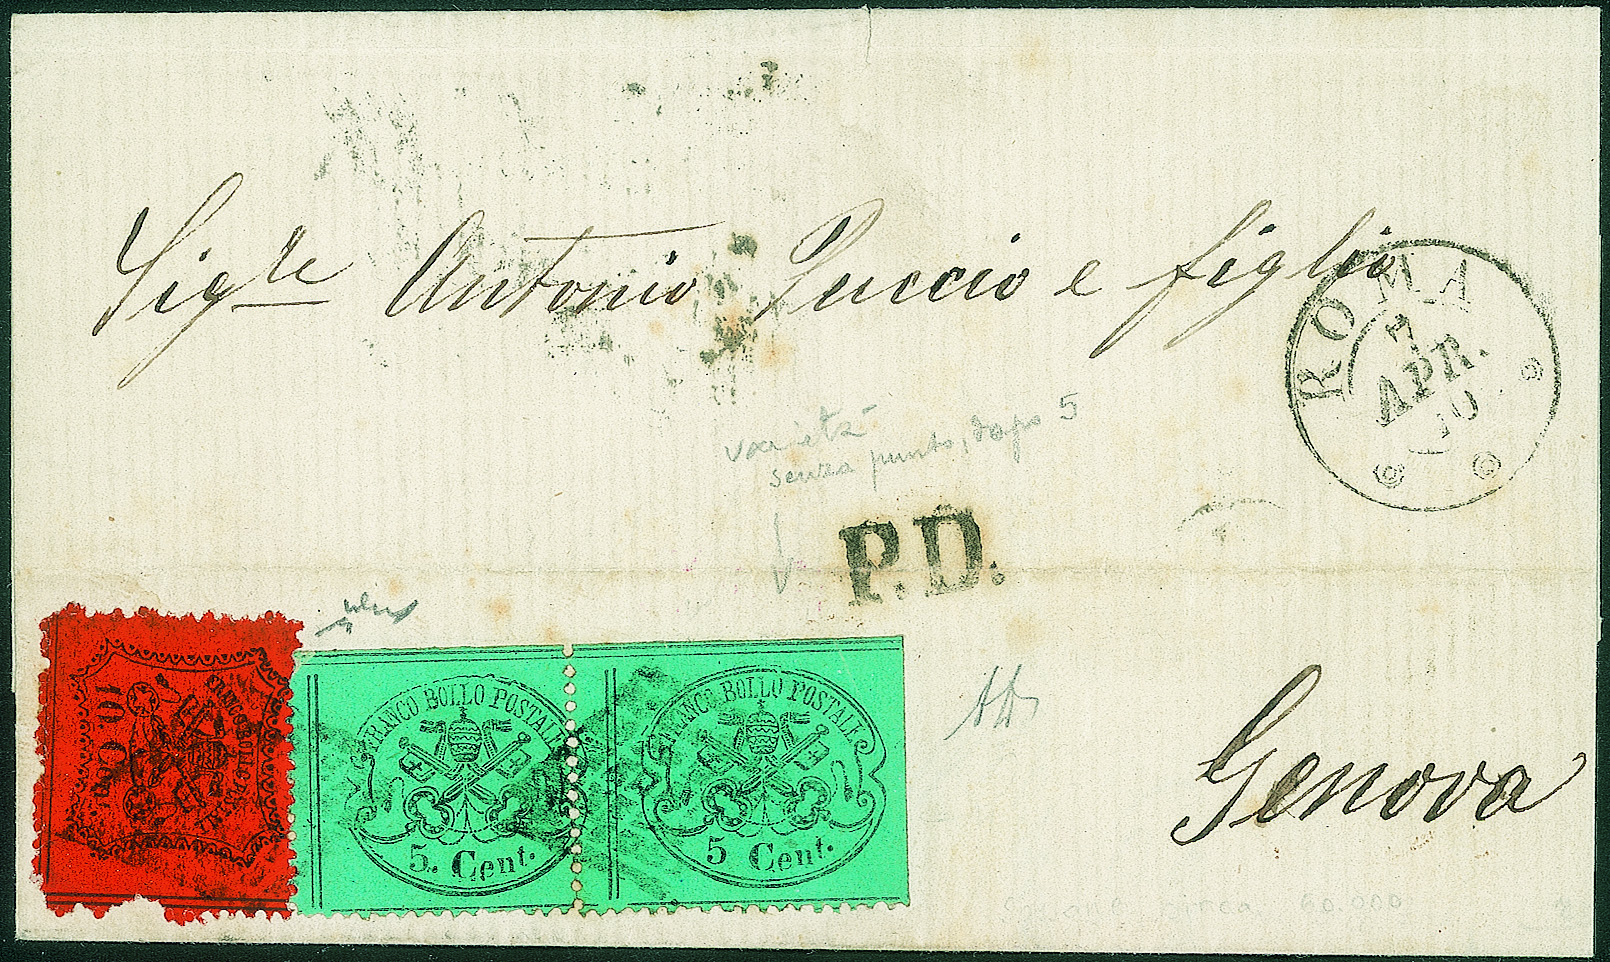 Sigre Antonio Puccio e figlio
ROMA
7
APR.
70
varietà
senza punto, dopo 5
P.D.
FRANCO BOLLO POSTALE
10. Cent.
FRANCO BOLLO POSTALE
5. Cent.
FRANCO BOLLO POSTALE
5 Cent.
Genova
60.000